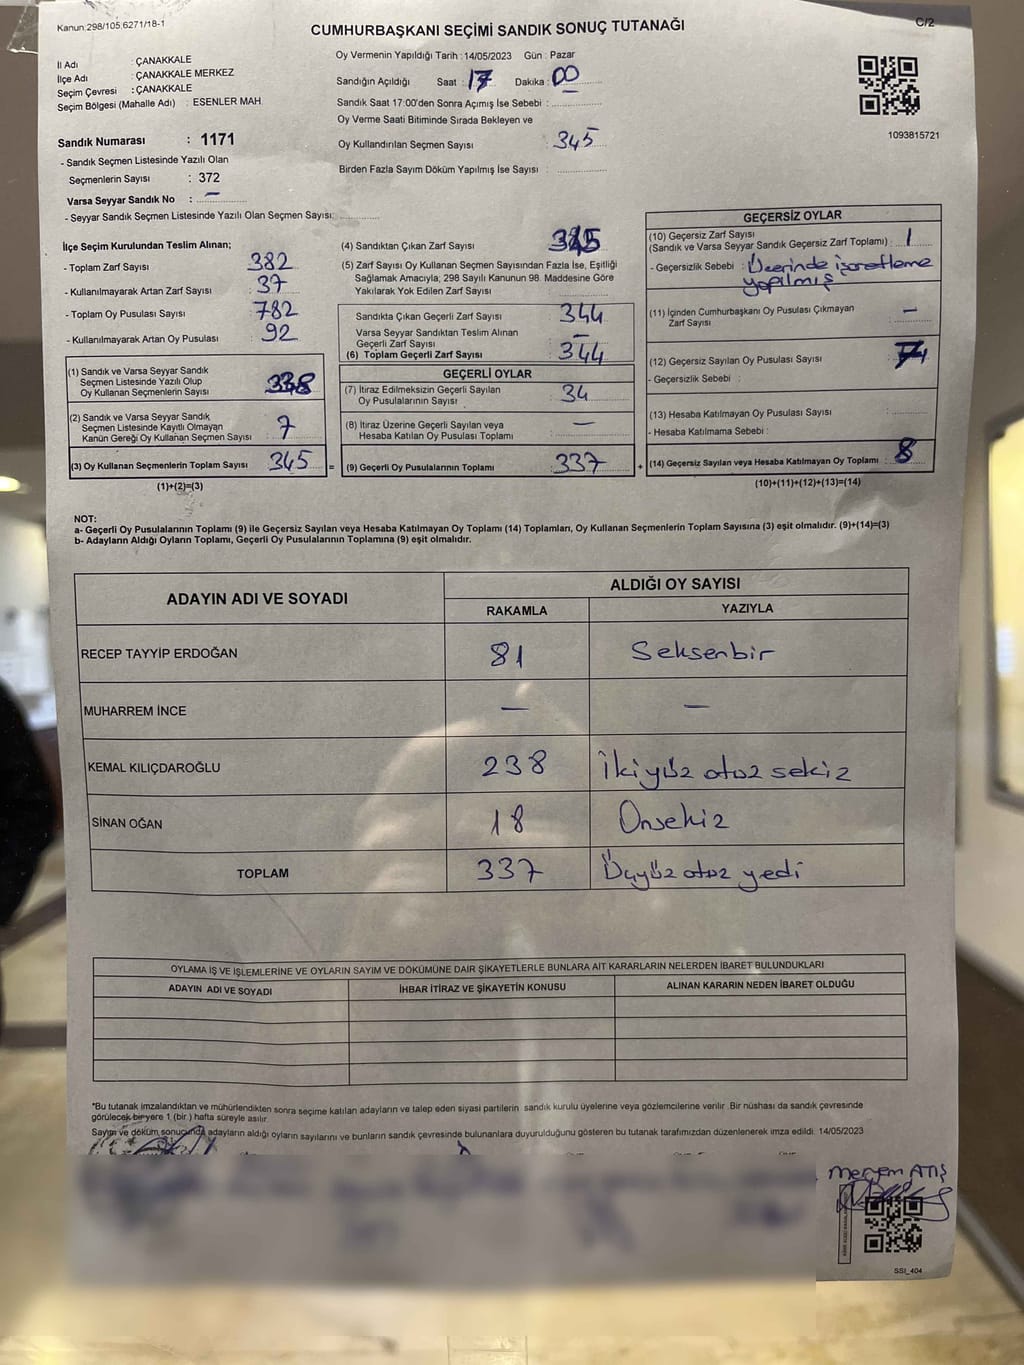 Kanun.298/105,6271/18-1
CUMHURBAŞKANI SEÇİMİ SANDIK SONUÇ TUTANAĞI
C/2
İl Adı : ÇANAKKALE
İlçe Adı : ÇANAKKALE MERKEZ
Seçim Çevresi : ÇANAKKALE
Seçim Bölgesi (Mahalle Adı) : ESENLER MAH.
Oy Vermenin Yapıldığı Tarih : 14/05/2023 Gün : Pazar
Sandığın Açıldığı Saat : 17 Dakika : 00
Sandık Saat 17:00'den Sonra Açımış İse Sebebi :
Oy Verme Saati Bitiminde Sırada Bekleyen ve
Oy Kullandırılan Seçmen Sayısı : 345
Birden Fazla Sayım Döküm Yapılmış İse Sayısı :
1093815721
Sandık Numarası : 1171
- Sandık Seçmen Listesinde Yazılı Olan
Seçmenlerin Sayısı : 372
Varsa Seyyar Sandık No : –
- Seyyar Sandık Seçmen Listesinde Yazılı Olan Seçmen Sayısı:
İlçe Seçim Kurulundan Teslim Alınan;
- Toplam Zarf Sayısı 382
- Kullanılmayarak Artan Zarf Sayısı 37
- Toplam Oy Pusulası Sayısı 782
- Kullanılmayarak Artan Oy Pusulası 92
(1) Sandık ve Varsa Seyyar Sandık
Seçmen Listesinde Yazılı Olup
Oy Kullanan Seçmenlerin Sayısı 338
(2) Sandık ve Varsa Seyyar Sandık
Seçmen Listesinde Kayıtlı Olmayan
Kanun Gereği Oy Kullanan Seçmen Sayısı 7
(3) Oy Kullanan Seçmenlerin Toplam Sayısı 345 =
(1)+(2)=(3)
(4) Sandıktan Çıkan Zarf Sayısı 345
(5) Zarf Sayısı Oy Kullanan Seçmen Sayısından Fazla İse, Eşitliği
Sağlamak Amacıyla, 298 Sayılı Kanunun 98. Maddesine Göre
Yakılarak Yok Edilen Zarf Sayısı
Sandıkta Çıkan Geçerli Zarf Sayısı 344
Varsa Seyyar Sandıktan Teslim Alınan
Geçerli Zarf Sayısı –
(6) Toplam Geçerli Zarf Sayısı 344
GEÇERLİ OYLAR
(7) İtiraz Edilmeksizin Geçerli Sayılan
Oy Pusulalarının Sayısı 34
(8) İtiraz Üzerine Geçerli Sayılan veya
Hesaba Katılan Oy Pusulası Toplamı –
(9) Geçerli Oy Pusulalarının Toplamı 337 +
GEÇERSİZ OYLAR
(10) Geçersiz Zarf Sayısı
(Sandık ve Varsa Seyyar Sandık Geçersiz Zarf Toplamı) : 1
- Geçersizlik Sebebi : Üzerinde işaretleme
yapılmış
(11) İçinden Cumhurbaşkanı Oy Pusulası Çıkmayan
Zarf Sayısı –
(12) Geçersiz Sayılan Oy Pusulası Sayısı
- Geçersizlik Sebebi :
(13) Hesaba Katılmayan Oy Pusulası Sayısı
- Hesaba Katılmama Sebebi :
(14) Geçersiz Sayılan veya Hesaba Katılmayan Oy Toplamı 8
(10)+(11)+(12)+(13)=(14)
NOT:
a- Geçerli Oy Pusulalarının Toplamı (9) ile Geçersiz Sayılan veya Hesaba Katılmayan Oy Toplamı (14) Toplamları, Oy Kullanan Seçmenlerin Toplam Sayısına (3) eşit olmalıdır. (9)+(14)=(3)
b- Adayların Aldığı Oyların Toplamı, Geçerli Oy Pusulalarının Toplamına (9) eşit olmalıdır.
ADAYIN ADI VE SOYADI
ALDIĞI OY SAYISI
RAKAMLA YAZIYLA
RECEP TAYYİP ERDOĞAN 81 Seksenbir
MUHARREM İNCE – –
KEMAL KILIÇDAROĞLU 238 İkiyüz otuz sekiz
SİNAN OĞAN 18 Onsekiz
TOPLAM 337 Üçyüz otuz yedi
OYLAMA İŞ VE İŞLEMLERİNE VE OYLARIN SAYIM VE DÖKÜMÜNE DAİR ŞİKAYETLERLE BUNLARA AİT KARARLARIN NELERDEN İBARET BULUNDUKLARI
ADAYIN ADI VE SOYADI İHBAR İTİRAZ VE ŞİKAYETİN KONUSU ALINAN KARARIN NEDEN İBARET OLDUĞU
*Bu tutanak imzalandıktan ve mühürlendikten sonra seçime katılan adayların ve talep eden siyasi partilerin sandık kurulu üyelerine veya gözlemcilerine verilir. Bir nüshası da sandık çevresinde
görülecek bir yere 1 (bir ) hafta süreyle asılır.
Sayım ve döküm sonucunda adayların aldığı oyların sayılarını ve bunların sandık çevresinde bulunanlara duyurulduğunu gösteren bu tutanak tarafımızdan düzenlenerek imza edildi. 14/05/2023
Meryem ATIŞ
SSI_404